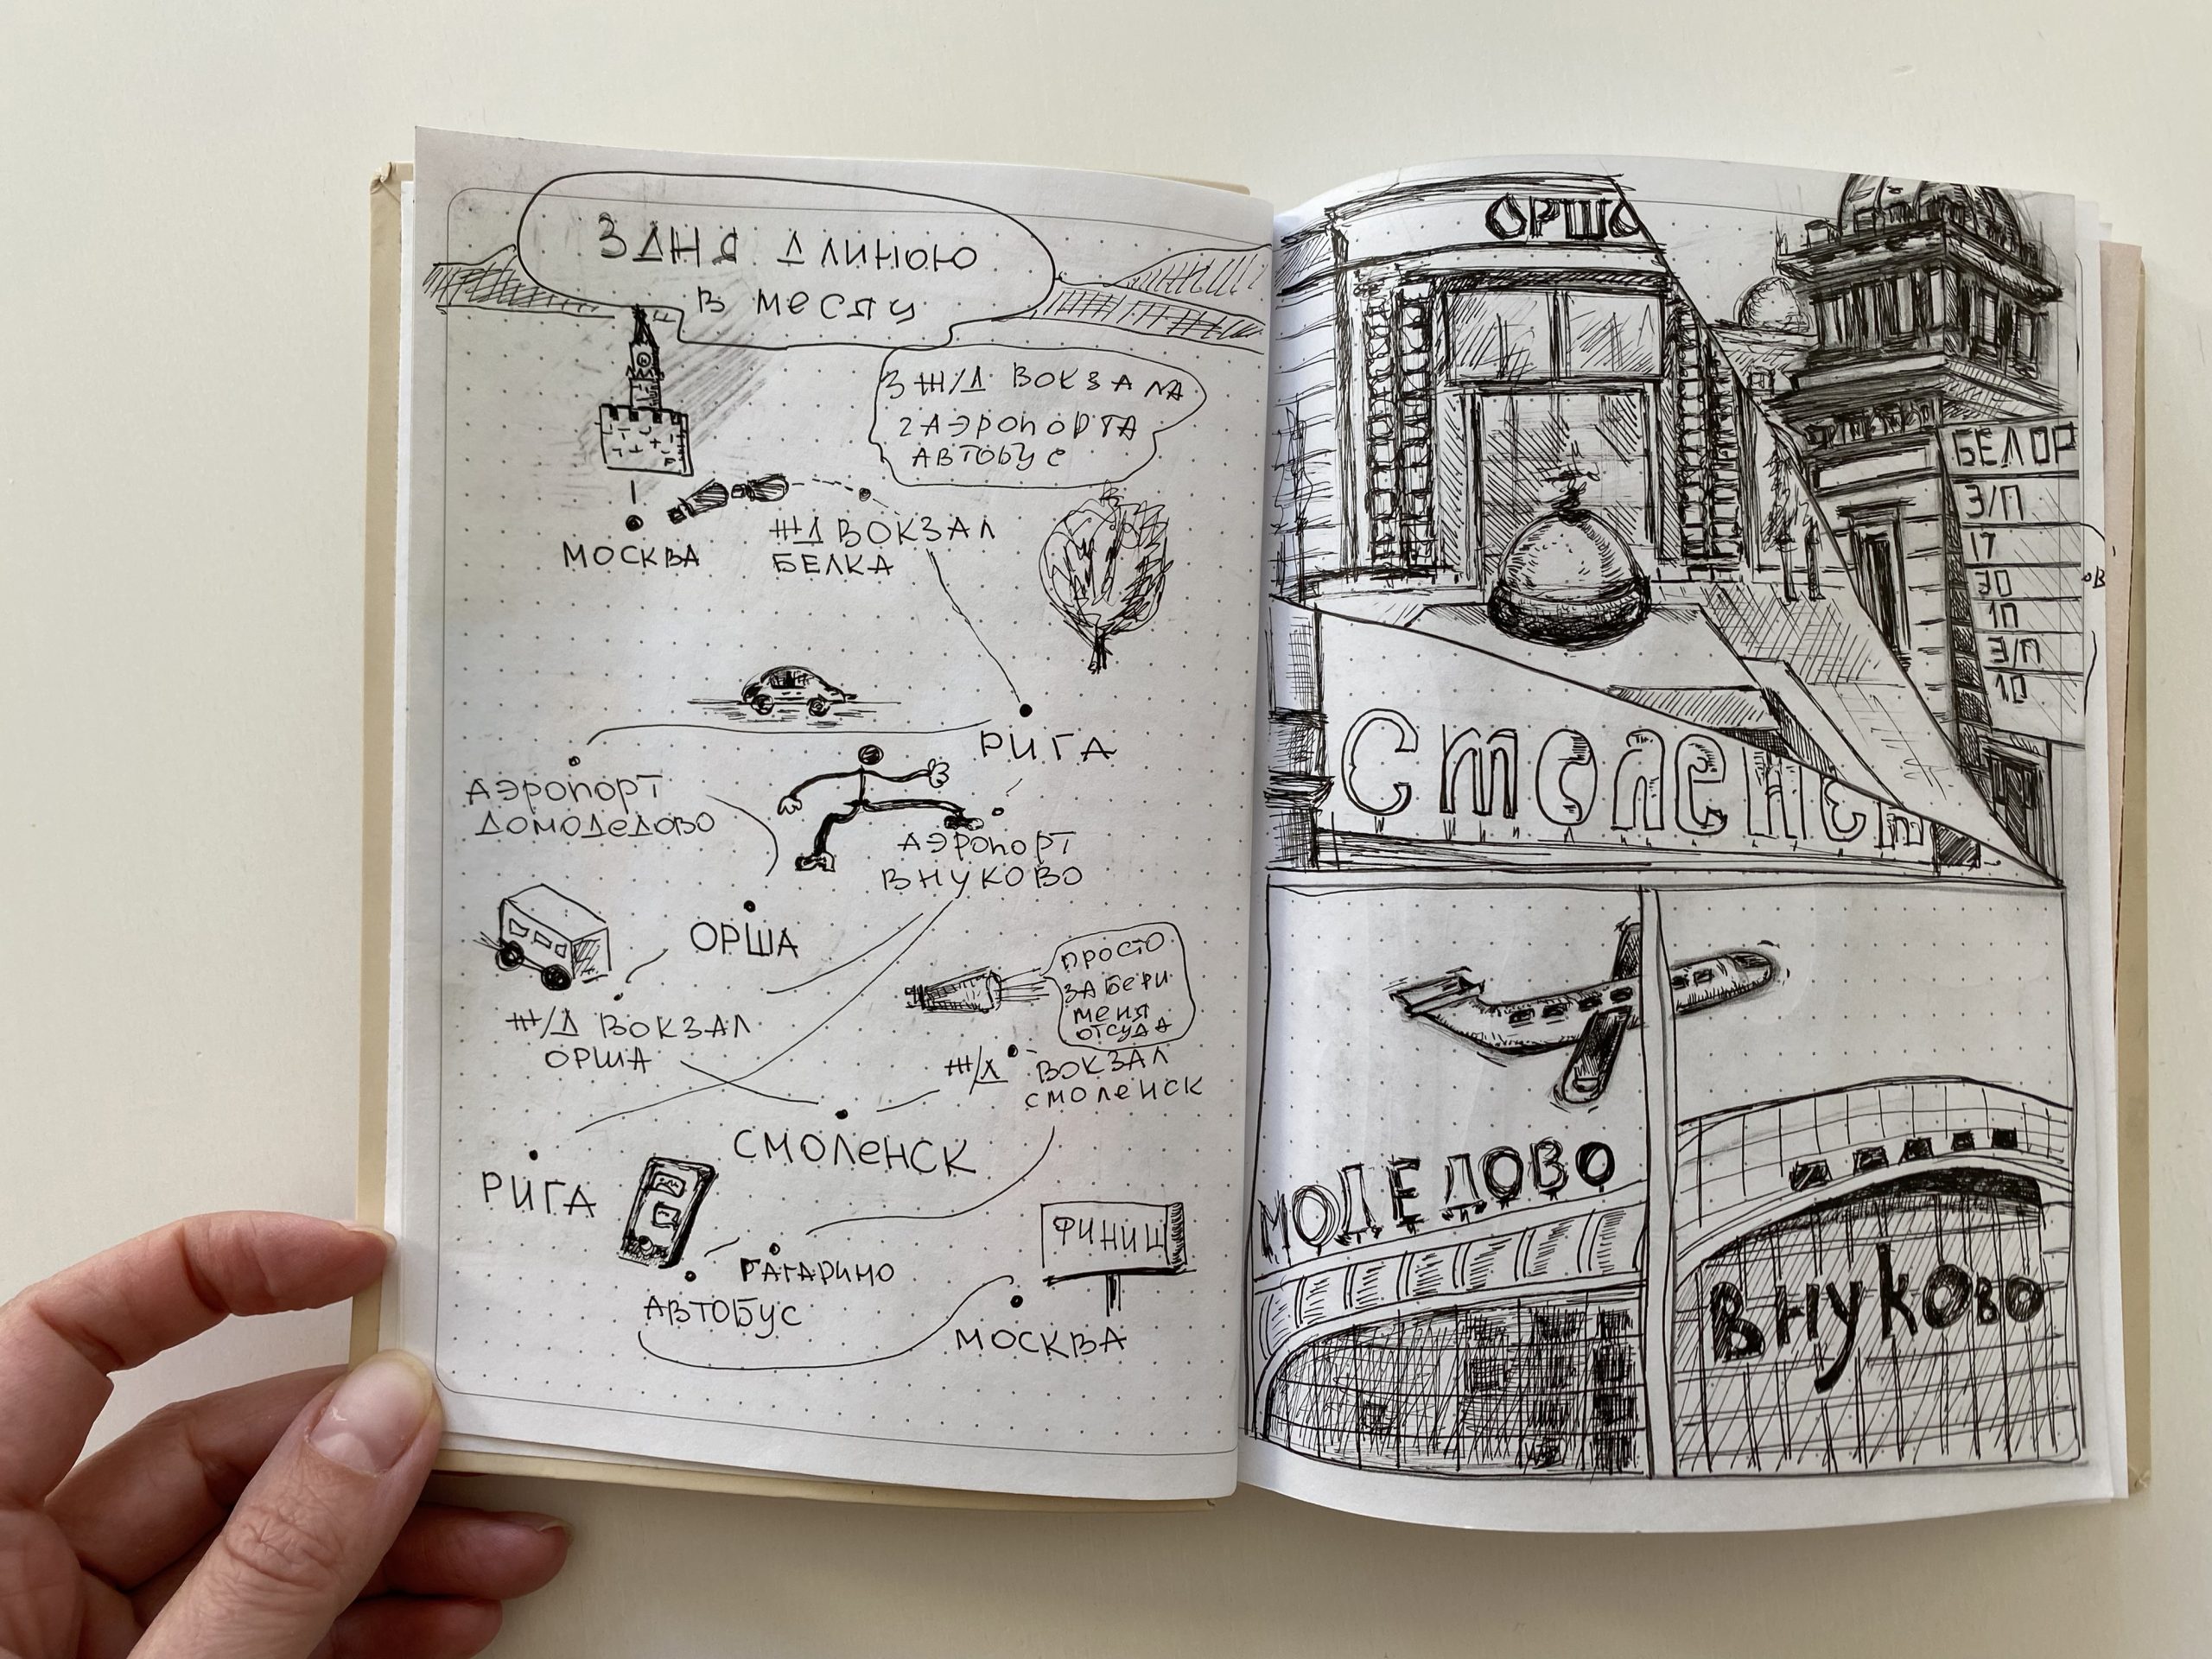 3 ДНЯ ДЛИНОЮ
В МЕСЯЦ
3 Ж/Д ВОКЗАЛА
2 АЭРОПОРТА
АВТОБУС
МОСКВА
ЖД ВОКЗАЛ
БЕЛКА
РИГА
АЭРОПОРТ
ДОМОДЕДОВО
АЭРОПОРТ
ВНУКОВО
ОРША
ПРОСТО
ЗАБЕРИ
МЕНЯ
ОТСУДА
Ж/Д ВОКЗАЛ
ОРША
Ж/Д ВОКЗАЛ
СМОЛЕНСК
СМОЛЕНСК
РИГА
ФИНИШ
ГАГАРИНО
АВТОБУС
МОСКВА
ОРША
БЕЛОР
З/П
17
30
1П
З/П
10
ОВ
Смоленск
МОДЕДОВО
ВНУКОВО